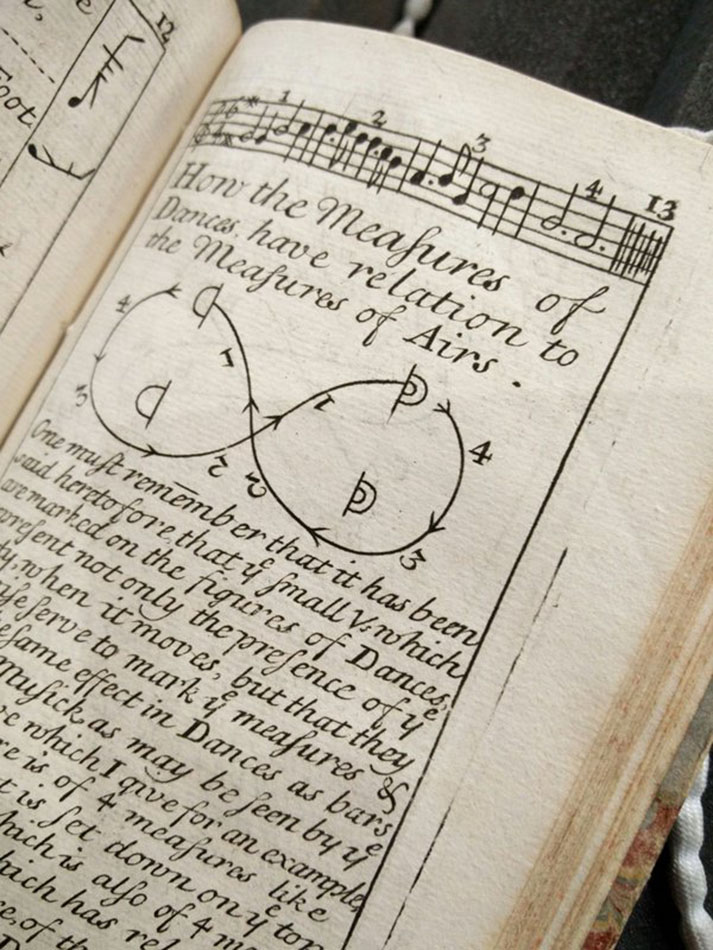 12
Foot
1 2 3 4 13
How the Meaſures of
Dances, have relation to
the Meaſures of Airs .
4 1 1
3 2 2 4
3
One muſt remēmber that it has been
said heretofore, that yͤ ſmall V. which
are marked on the figures of Dances,
not only the presence of yͤ
when it moves, but that they
ſerve to mark yͤ meaſures &
ſame effect in Dances as bars
Muſick as may be ſeen by yͤ
which I give for an example
is of 4 meaſures like
is ſet down on yͤ top
which is alſo of 4
which has
of